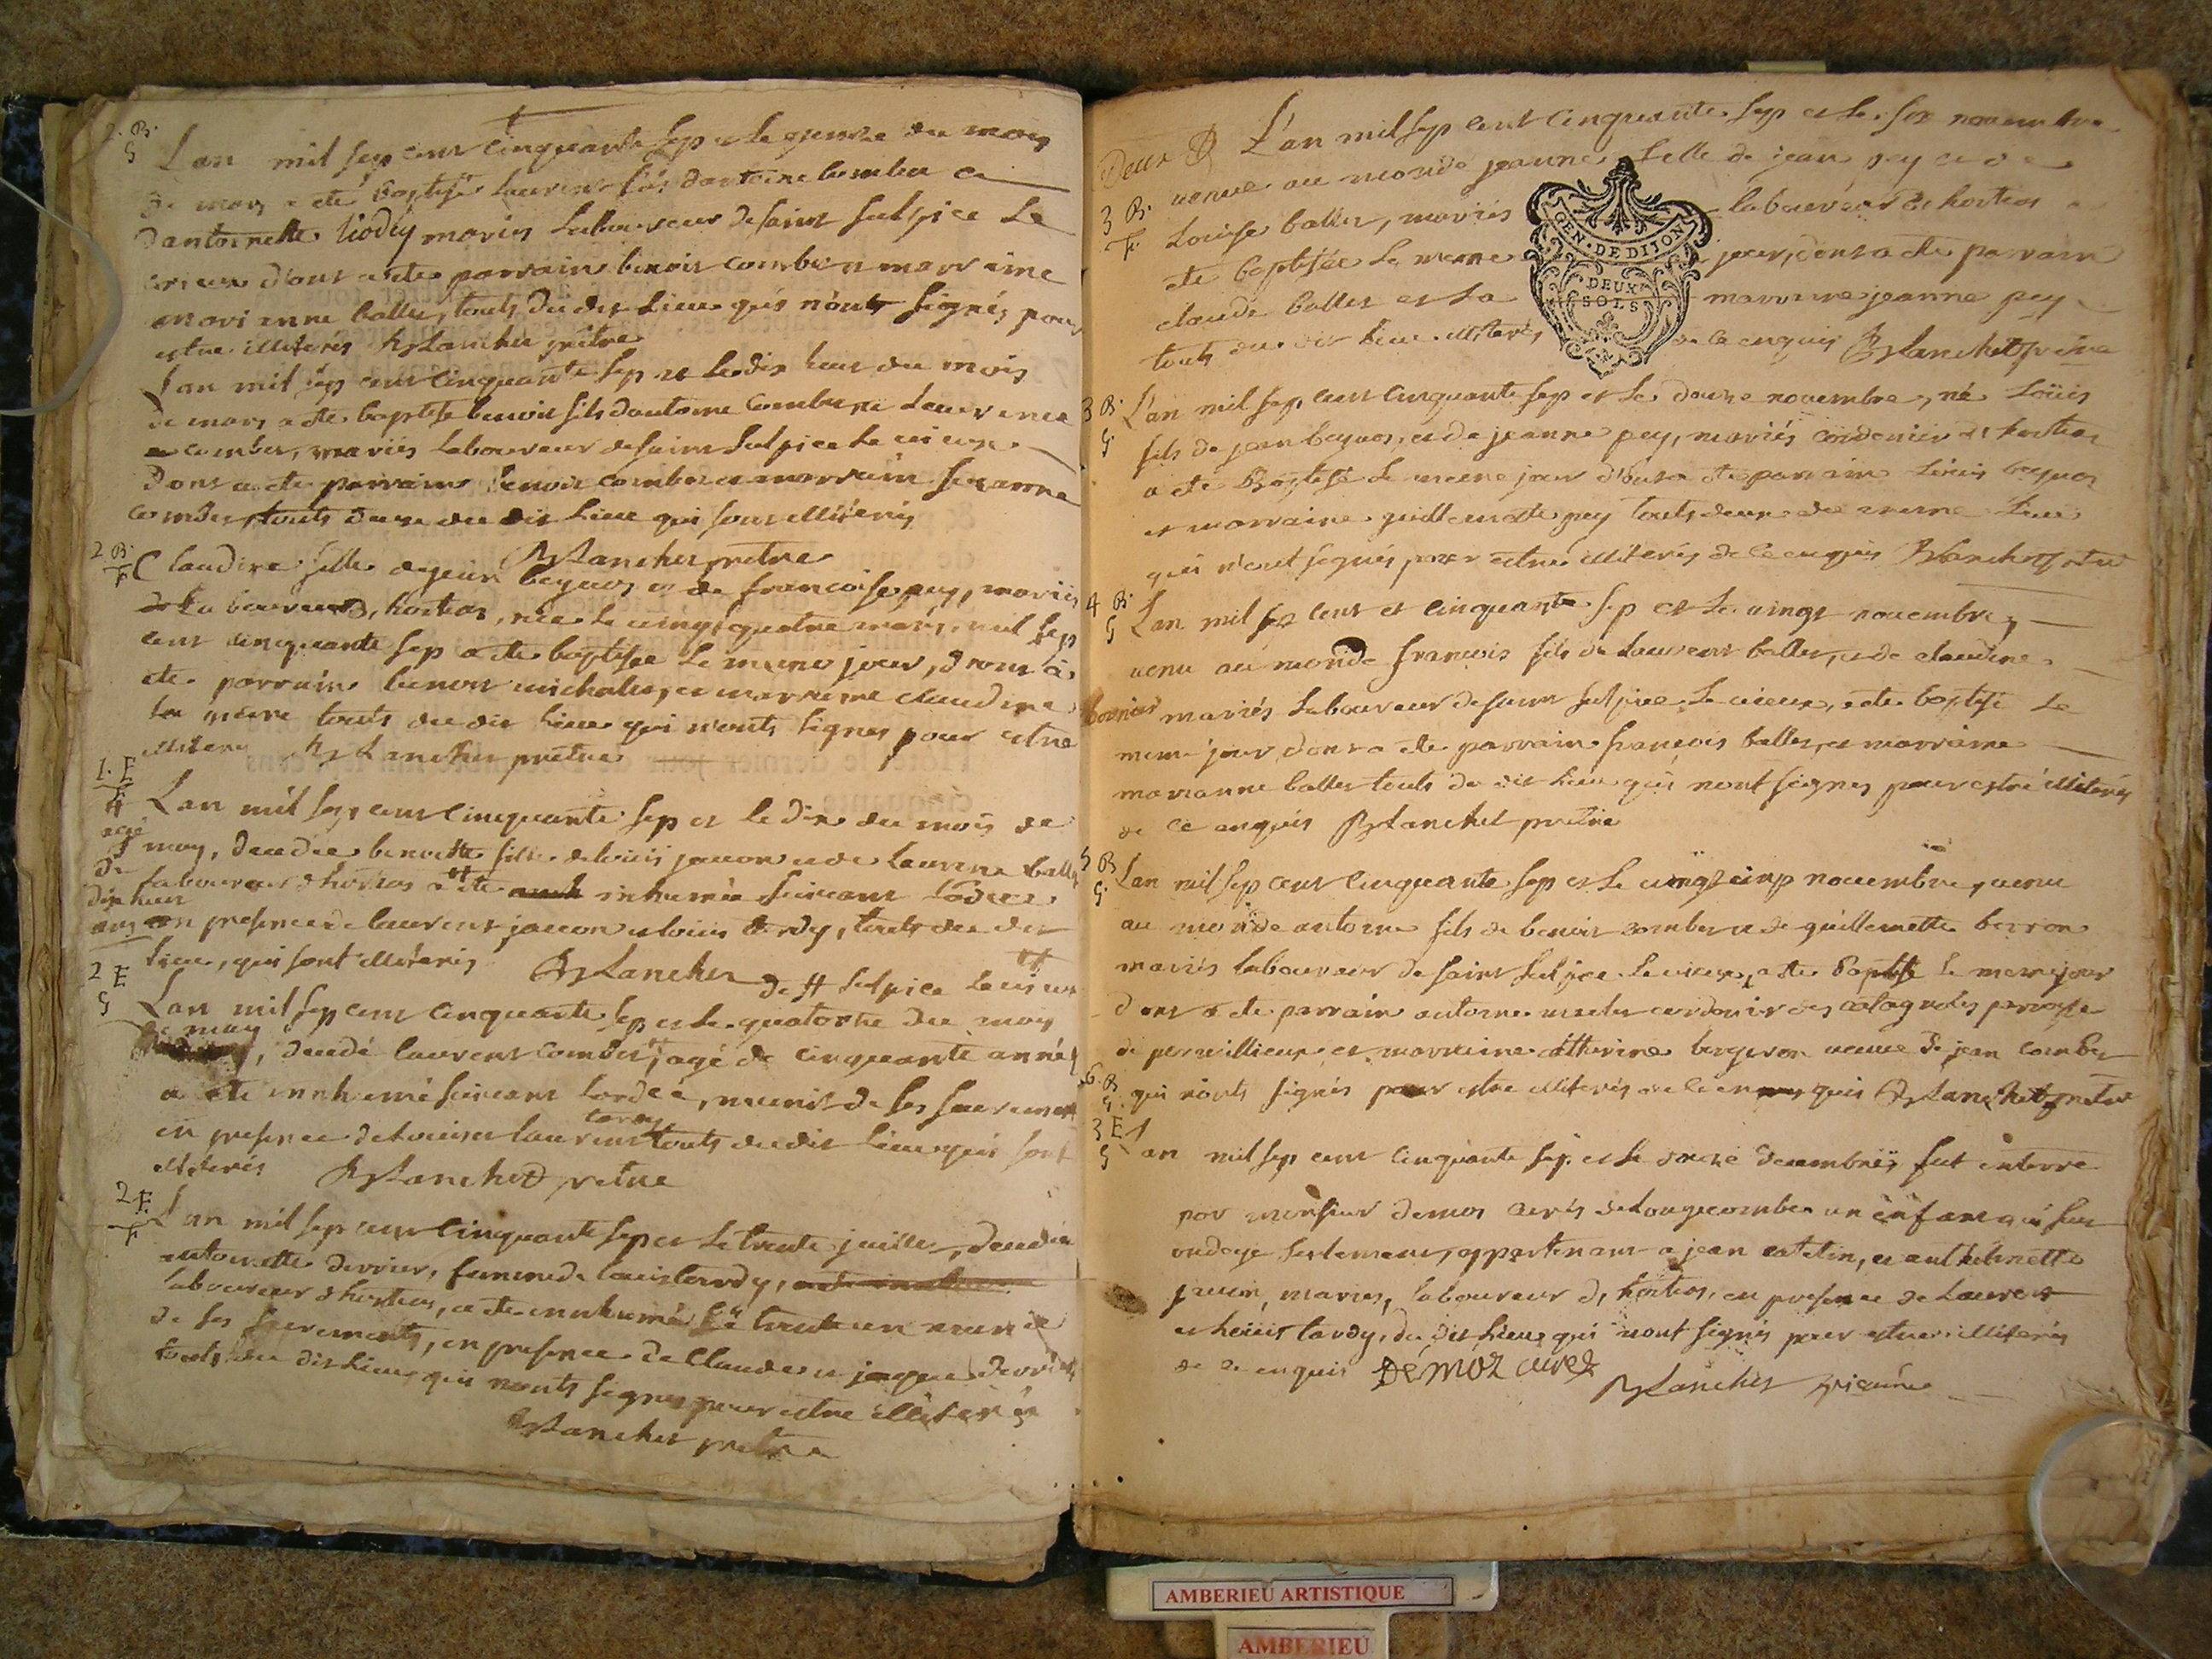 L'an mil sep cent cinquante sep et le quinze du mois
de mars a eté baptisé laurent fils dantoine combet et
dantoinette liodÿ mariés laboureur de saint sulpice le
vieux dont a ete parrain benoit combet et marraine
mari anne ballet, touts du dit lieu qui n'onts signés pour
estre illiterés Blanchet prêtre
L'an mil sep cent cinquante sep et le dix huit du mois
de mars a ete baptisé benoit fils dantoine combet et laurence
combet, mariés laboureur de saint sulpice le vieux
dont a ete parrain benoit combet et marraine
combet, touts deux du dit lieu qui sont illiterés
Blanchet pretre
2 B.
F
Claudine fille de jean et de francoise pey, mariés
laboureur, hostias, née le vingt quatre mars, mil sep
cent cinquante sep a ete baptisée le meme jour, dont a
ete parrain benoit michalet, et marraine claudine
touts du dit lieu qui n'onts signes pour estre
illiterés Blanchet pretre
1. E
F
L'an mil sep cent cinquante sep et le dix du mois de
agé
de
dix huit
ans
may, decedée benoitte fille de louis jauon et de laurence ballet
laboureur d hostias a ete inhumée suivant lordre
en presence de laurent jauon et louis tardy, touts du dit
lieu, qui sont illiterés Blanchet
de # sulpice le vieux
2 E
G
L'an mil sep cent cinquante sep et le quatorze du moy
de may, decedé laurent combet #, agé de cinquante années
a ete innhumé suivant lordre, munit de ses sacrements
tardy
en presence de louis et laurent touts du dit lieu qui sont
illiterés Blanchet pretre
2 E.
F
L'an mil sep cent cinquante sep et le trente juillet, decedée
antoinette derrier, femme de louis tardy,
laboureur d hostias, a ete innhumé le trente un munie
de ses sacrements, en presence de Claude et jaque derrier
touts du dit lieu, qui n'onts signes pour estre illiterés
Blanchet pretre
Deux
L'an mil sep cent cinquante sep et le six novembre
3 B.
F.
venue au monde jeanne fille de jean pey et de
Louise ballet, mariés laboureur d hostias a
ete baptisée le meme jour, dont a ete parrain
claude ballet et la marraine jeanne pey
touts du dit lieu illiterés de ce enquis Blanchet pretre
GEN. DE DIJON
DEUX
SOLS
3 B.
G.
L'an mil sep cent cinquante sep et le douze novembre, né Loüis
fils de jean et de jeanne pey, mariés cordonier d hostias
a ete Baptisé le meme jour d'ont a ete parrain Louis
et marraine guillemette pey touts deux du meme lieu
qui n'ont signés pour estre illiterés de ce enquis Blanchet pretre
4 B.
G
L'an mil sep cent et cinquante sep et le vingt novembre,
venu au monde francois fils de laurent ballet, et de claudine
mariés laboureur de saint sulpice le vieux, a ete baptisé le
meme jour, dont a ete parrain francois ballet, et marraine
marianne ballet touts du dit lieu qui n'ont signes pour estre illiterés
de ce enquis Blanchet pretre
5 B
G.
L'an mil sep cent cinquante sep et le vingt cinq novembre, venu
au monde antoine fils de benoit combet et de guillemette berron
mariés laboureur de saint sulpice le vieux, a ete baptisé le meme jour
dont a ete parrain antoine cordonier des paroisse
de et marraine cátherine bergeron veuve de jean combet
6. B
G.
qui n'onts signés pour estre illiterés de ce enquis Blanchet pretre
3 E
G
L'an mil sep cent cinquante sep et le douze decembre fut enterré
par monsieur demoz curés de Longecombe un enfant qui fut
ondoyé seulement, appartenant a jean catelin, et anthoinette
jauon, mariés, laboureur d, hostias, en presence de Laurent
et louis tardy, du dit lieu qui n'ont signés pour estre illiterés
de ce enquis Démoz curez
Blanchet vicaire
AMBERIEU ARTISTIQUE
AMBERIEU